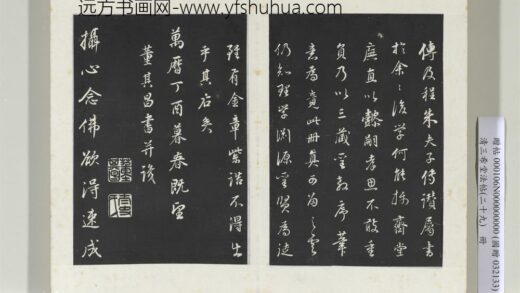 远方书画网-www.yfshuhua.com
傳及程朱夫子傳讚屬書
於余余後學何能揚齋堂
廡直以懿嗣孝思不敢重
負乃以三藏聖教序筆
意為竟此冊真可為之
仍知理學淵源聖賢為徒
雖有金章紫誥不得出
乎其右矣
萬曆丁酉暮春既望
董其昌書并識
攝心念佛欲得速成
贈帖 000106N000000000 (國贈 032133)
清三希堂法帖(二十九) 冊